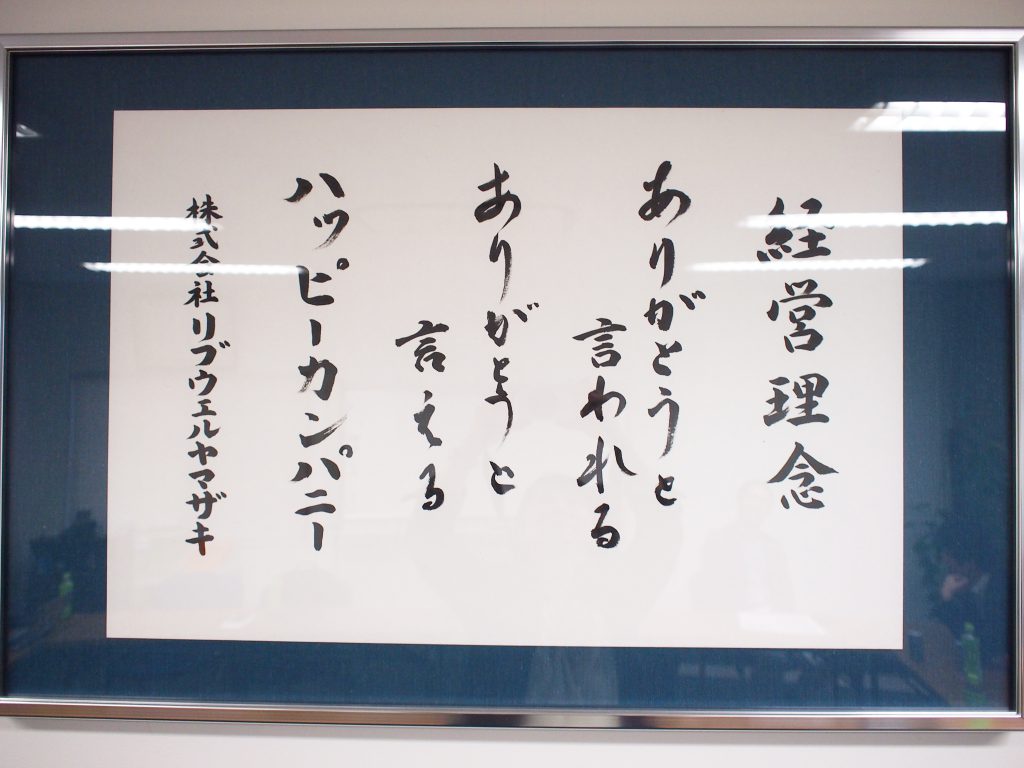 経営理念
ありがとうと
言われる
ありがとうと
言える
ハッピーカンパニー
株式会社リブウエルヤマザキ